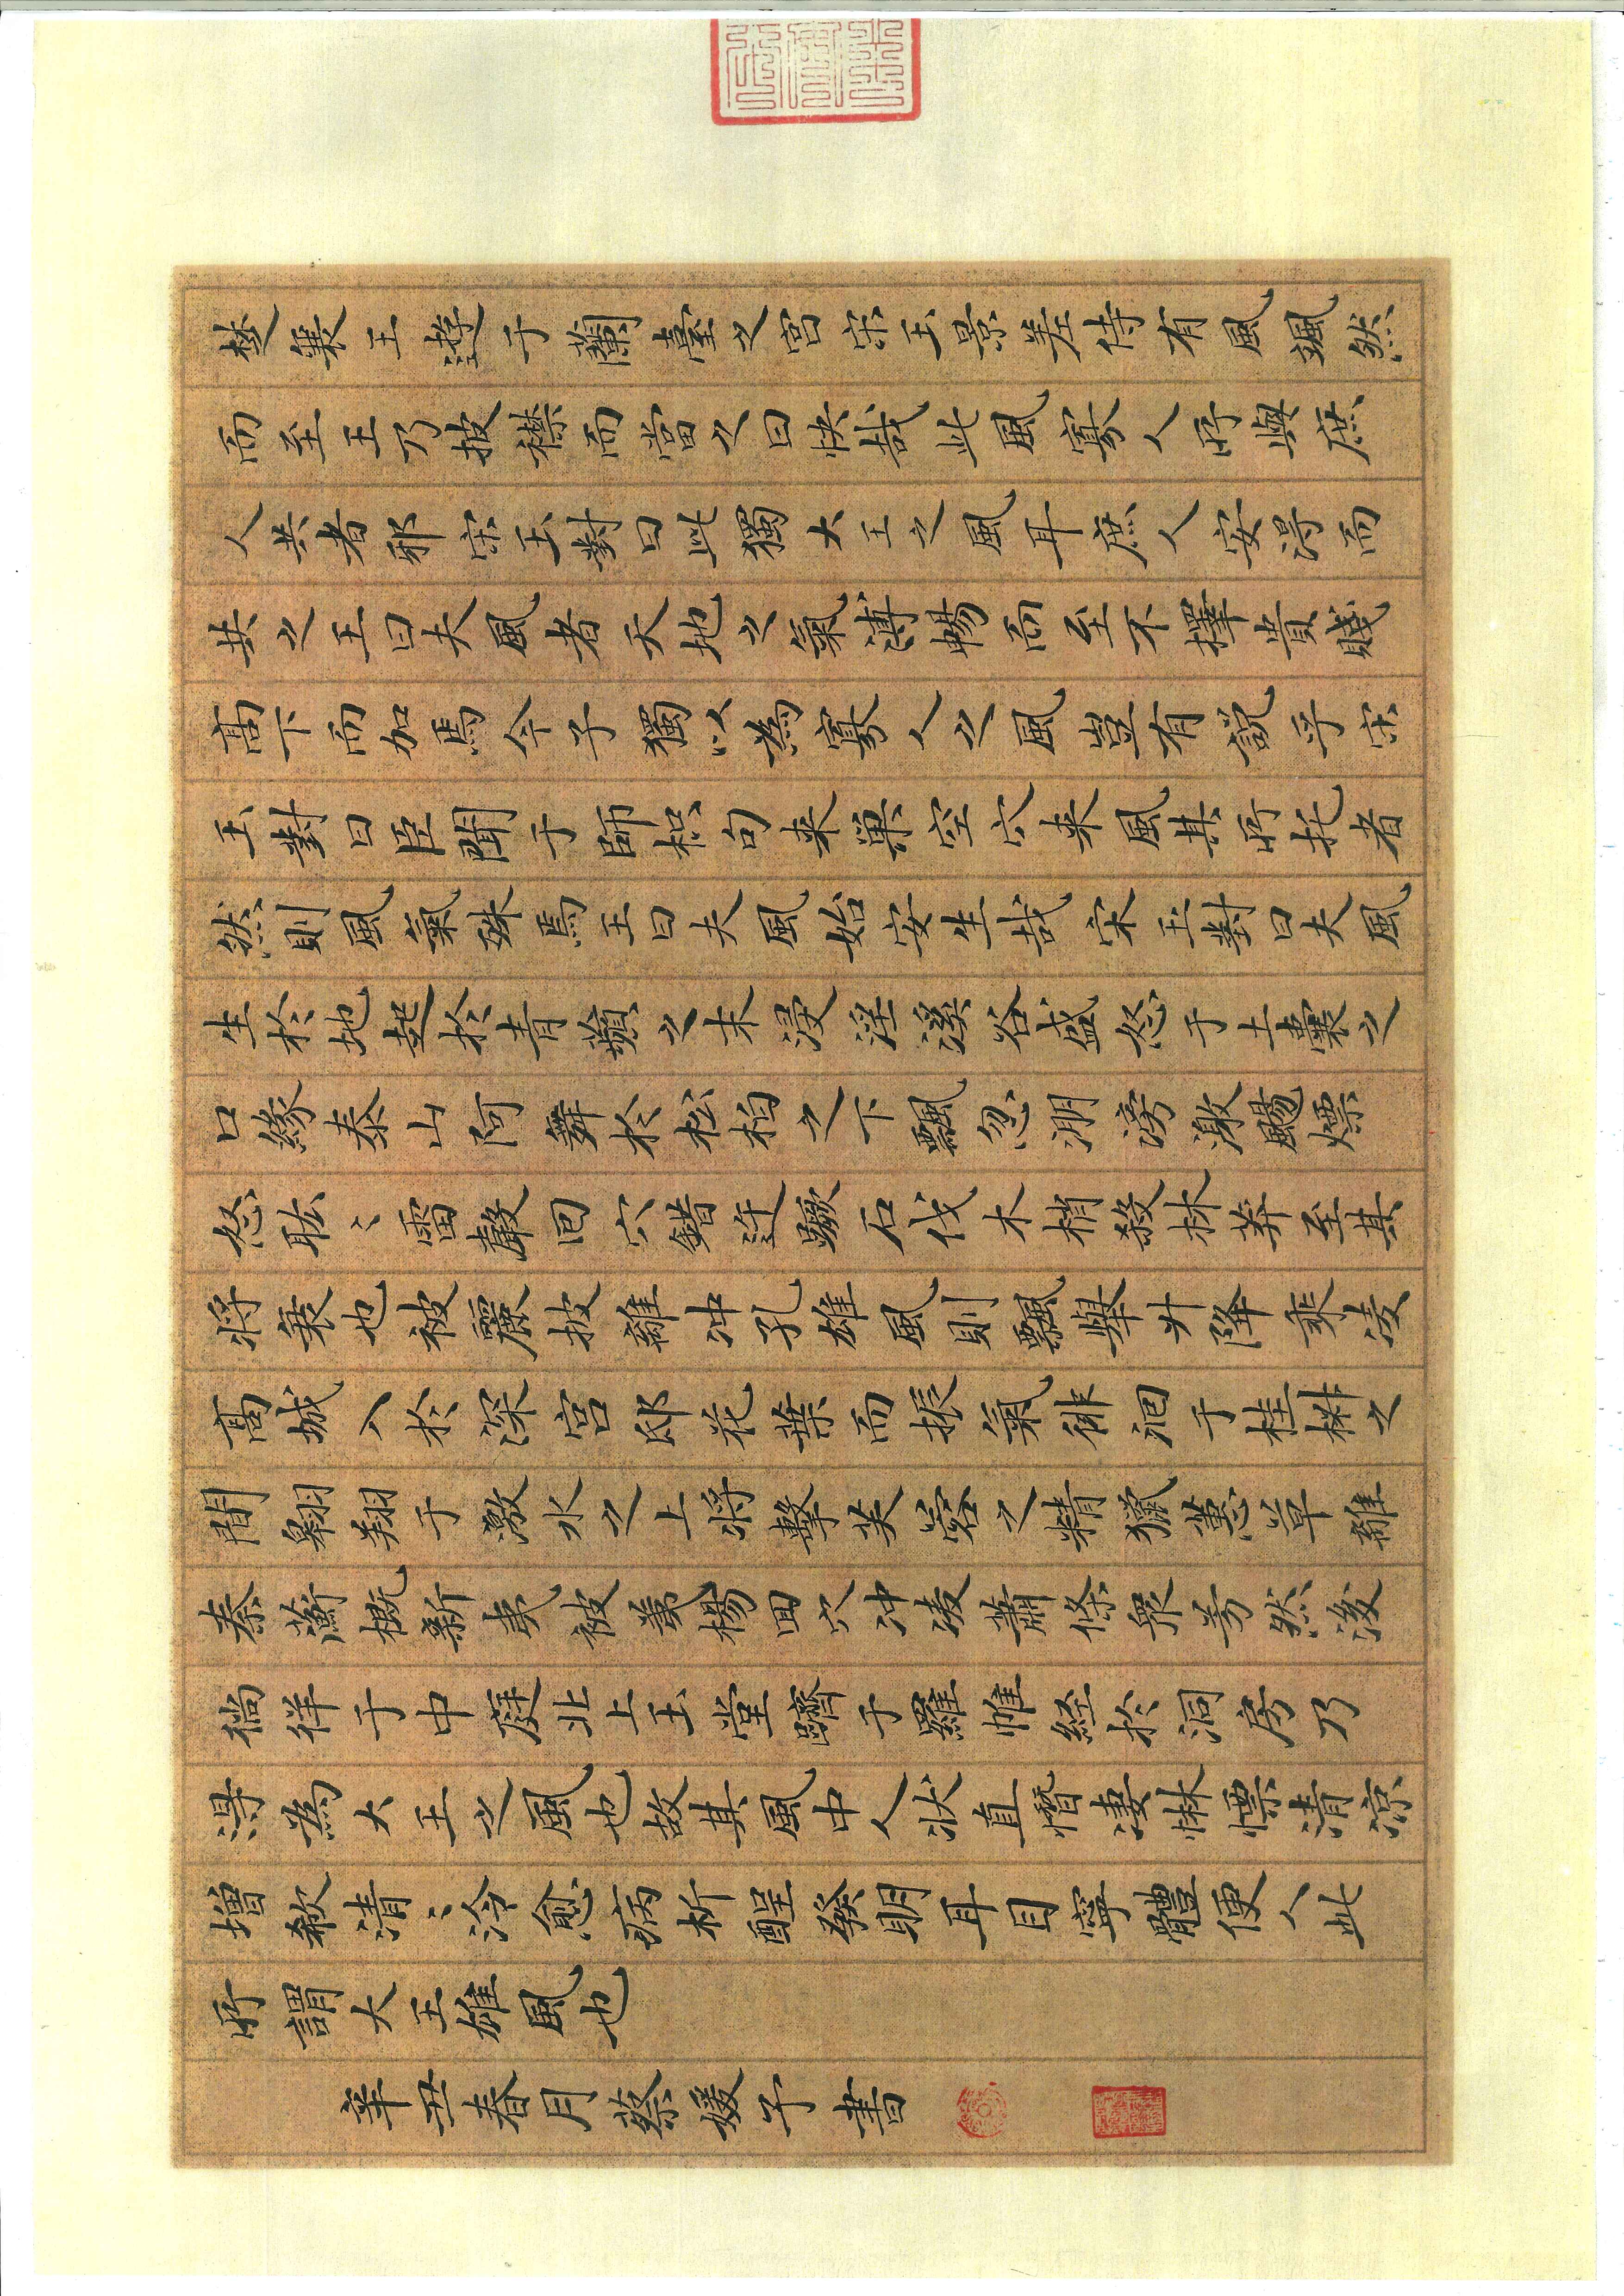 楚襄王遊于蘭臺之宮宋玉景差侍有風颯然
而至王乃披襟而當之曰快哉此風寡人所與庶
人共者邪宋玉對曰此獨大王之風耳庶人安得而
共之王曰夫風者天地之氣溥暢而至不擇貴賤
高下而加焉今子獨以為寡人之風豈有說乎宋
玉對曰臣聞于師枳句来巢空穴来風其所托者
然則風氣殊焉王曰夫風始安生哉宋玉對曰夫風
生於地起於青蘋之末浸淫溪谷盛怒于土囊之
口緣泰山阿舞於松柏之下飄忽淜滂激颺熛
怒耾〻雷聲回穴錯迕蹶石伐木梢殺林莽至其
将衰也被麗披離冲孔雄風則飄舉升降乘凌
高城入於深宮邸花葉而振氣徘洄于桂椒之
間翱翔于激水之上将擊芙蓉之精獵蕙草離
秦蘅概新夷被荑楊回穴冲凌蕭條衆芳然後
徜徉于中庭北上玉堂躋于羅帷経於洞房乃
得為大王之風也故其風中人狀直憯凄惏慄清涼
增欷清〻泠愈病析酲發明耳目寧體便人此
所謂大王雄風也
辛丑春月蔡媛予書